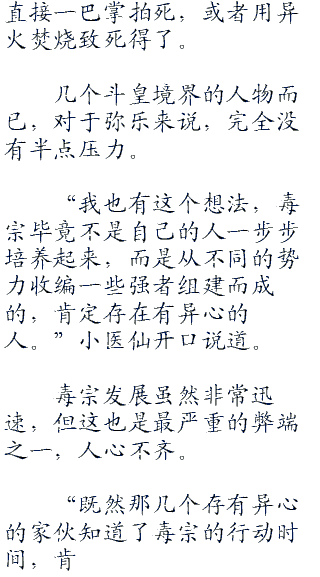 直接一巴掌拍死，或者用异
火焚烧致死得了。
几个斗皇境界的人物而
已，对于弥乐来说，完全没
有半点压力。
“我也有这个想法，毒
宗毕竟不是自己的人一步步
培养起来，而是从不同的势
力收编一些强者组建而成
的，肯定存在有异心的
人。”小医仙开口说道。
毒宗发展虽然非常迅
速，但这也是最严重的弊端
之一，人心不齐。
“既然那几个存有异心
的家伙知道了毒宗的行动时
间，肯